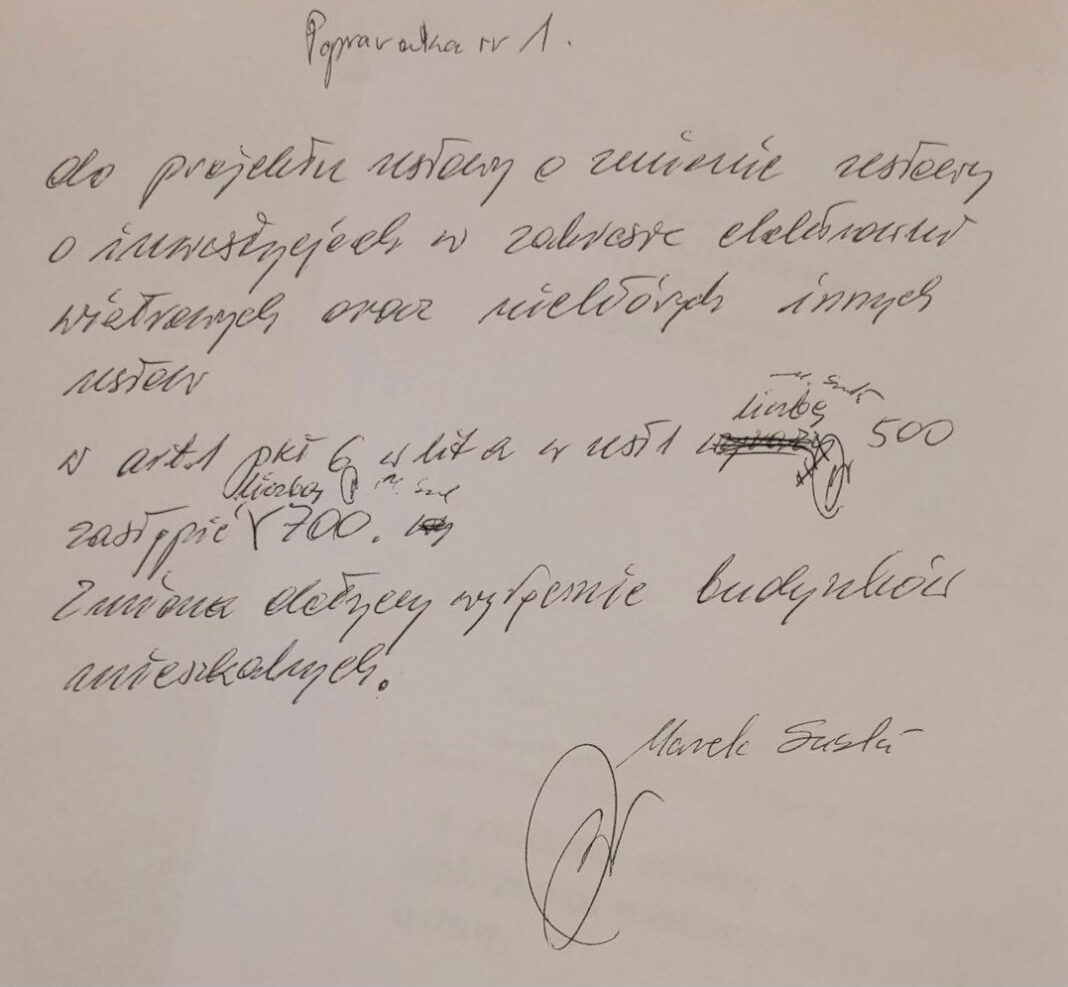 Poprawka nr 1.
do projektu ustawy o zmianie ustawy
o inwestycjach w zakresie elektrowni
wiatrowych oraz niektórych innych
ustaw
M. Sus
liczbę
w art. 1 pkt 6 w lit a w ust 1 500
liczbą M. Sus
zastąpić 700.
Zmiana dotyczy wyłącznie budynków
mieszkalnych.
Marek Suski